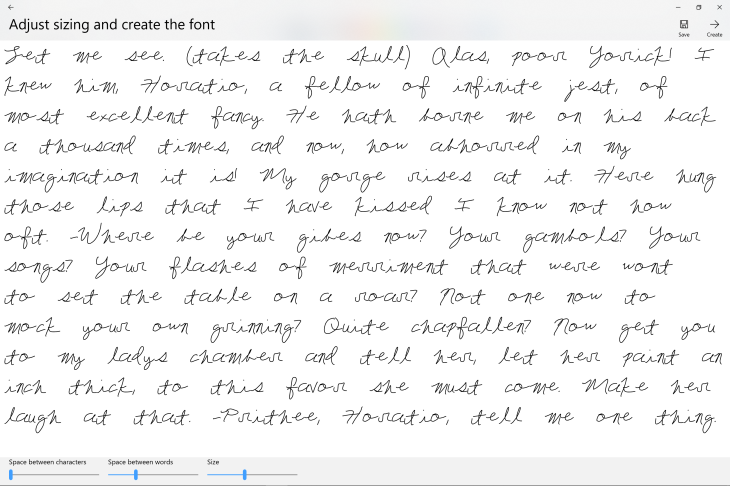 Adjust sizing and create the font
Save
Create
Let me see. (takes the skull) Alas, poor Yorick! I
knew him, Horatio, a fellow of infinite jest, of
most excellent fancy. He hath borne me on his back
a thousand times, and now, how abhorred in my
imagination it is! My gorge rises at it. Here hung
those lips that I have kissed I know not how
oft. -Where be your gibes now? Your gambols? Your
songs? Your flashes of merriment that were wont
to set the table on a roar? Not one now to
mock your own grinning? Quite chapfallen? Now get you
to my ladys chamber and tell her, let her paint an
inch thick, to this favor she must come. Make her
laugh at that. -Prithee, Horatio, tell me one thing.
Space between characters
Space between words
Size